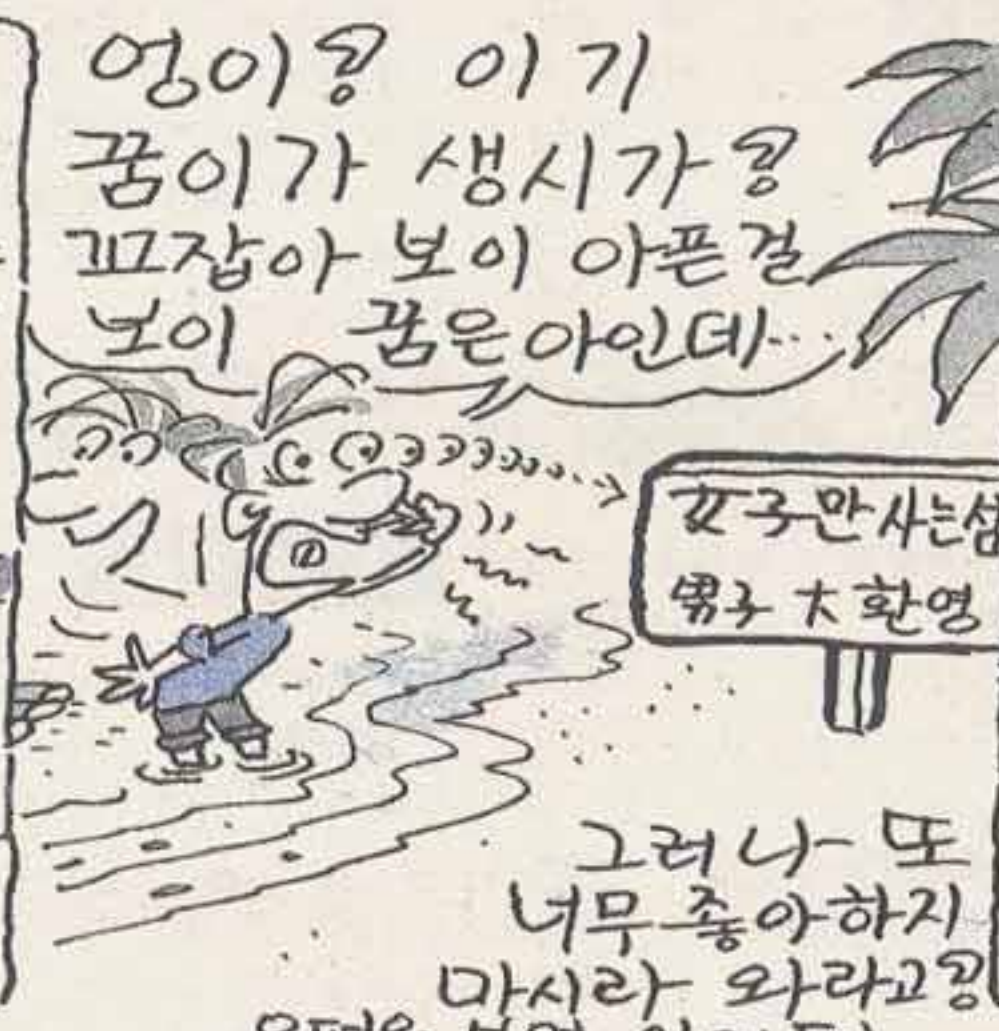 엉이? 이기
꿈이가 생시가?
꼬잡아 보이 아픈걸
보이 꿈은아인데…
女子만 사는섬
男子 大 환영
그러나 또
너무 좋아하지
마시라 와라고?